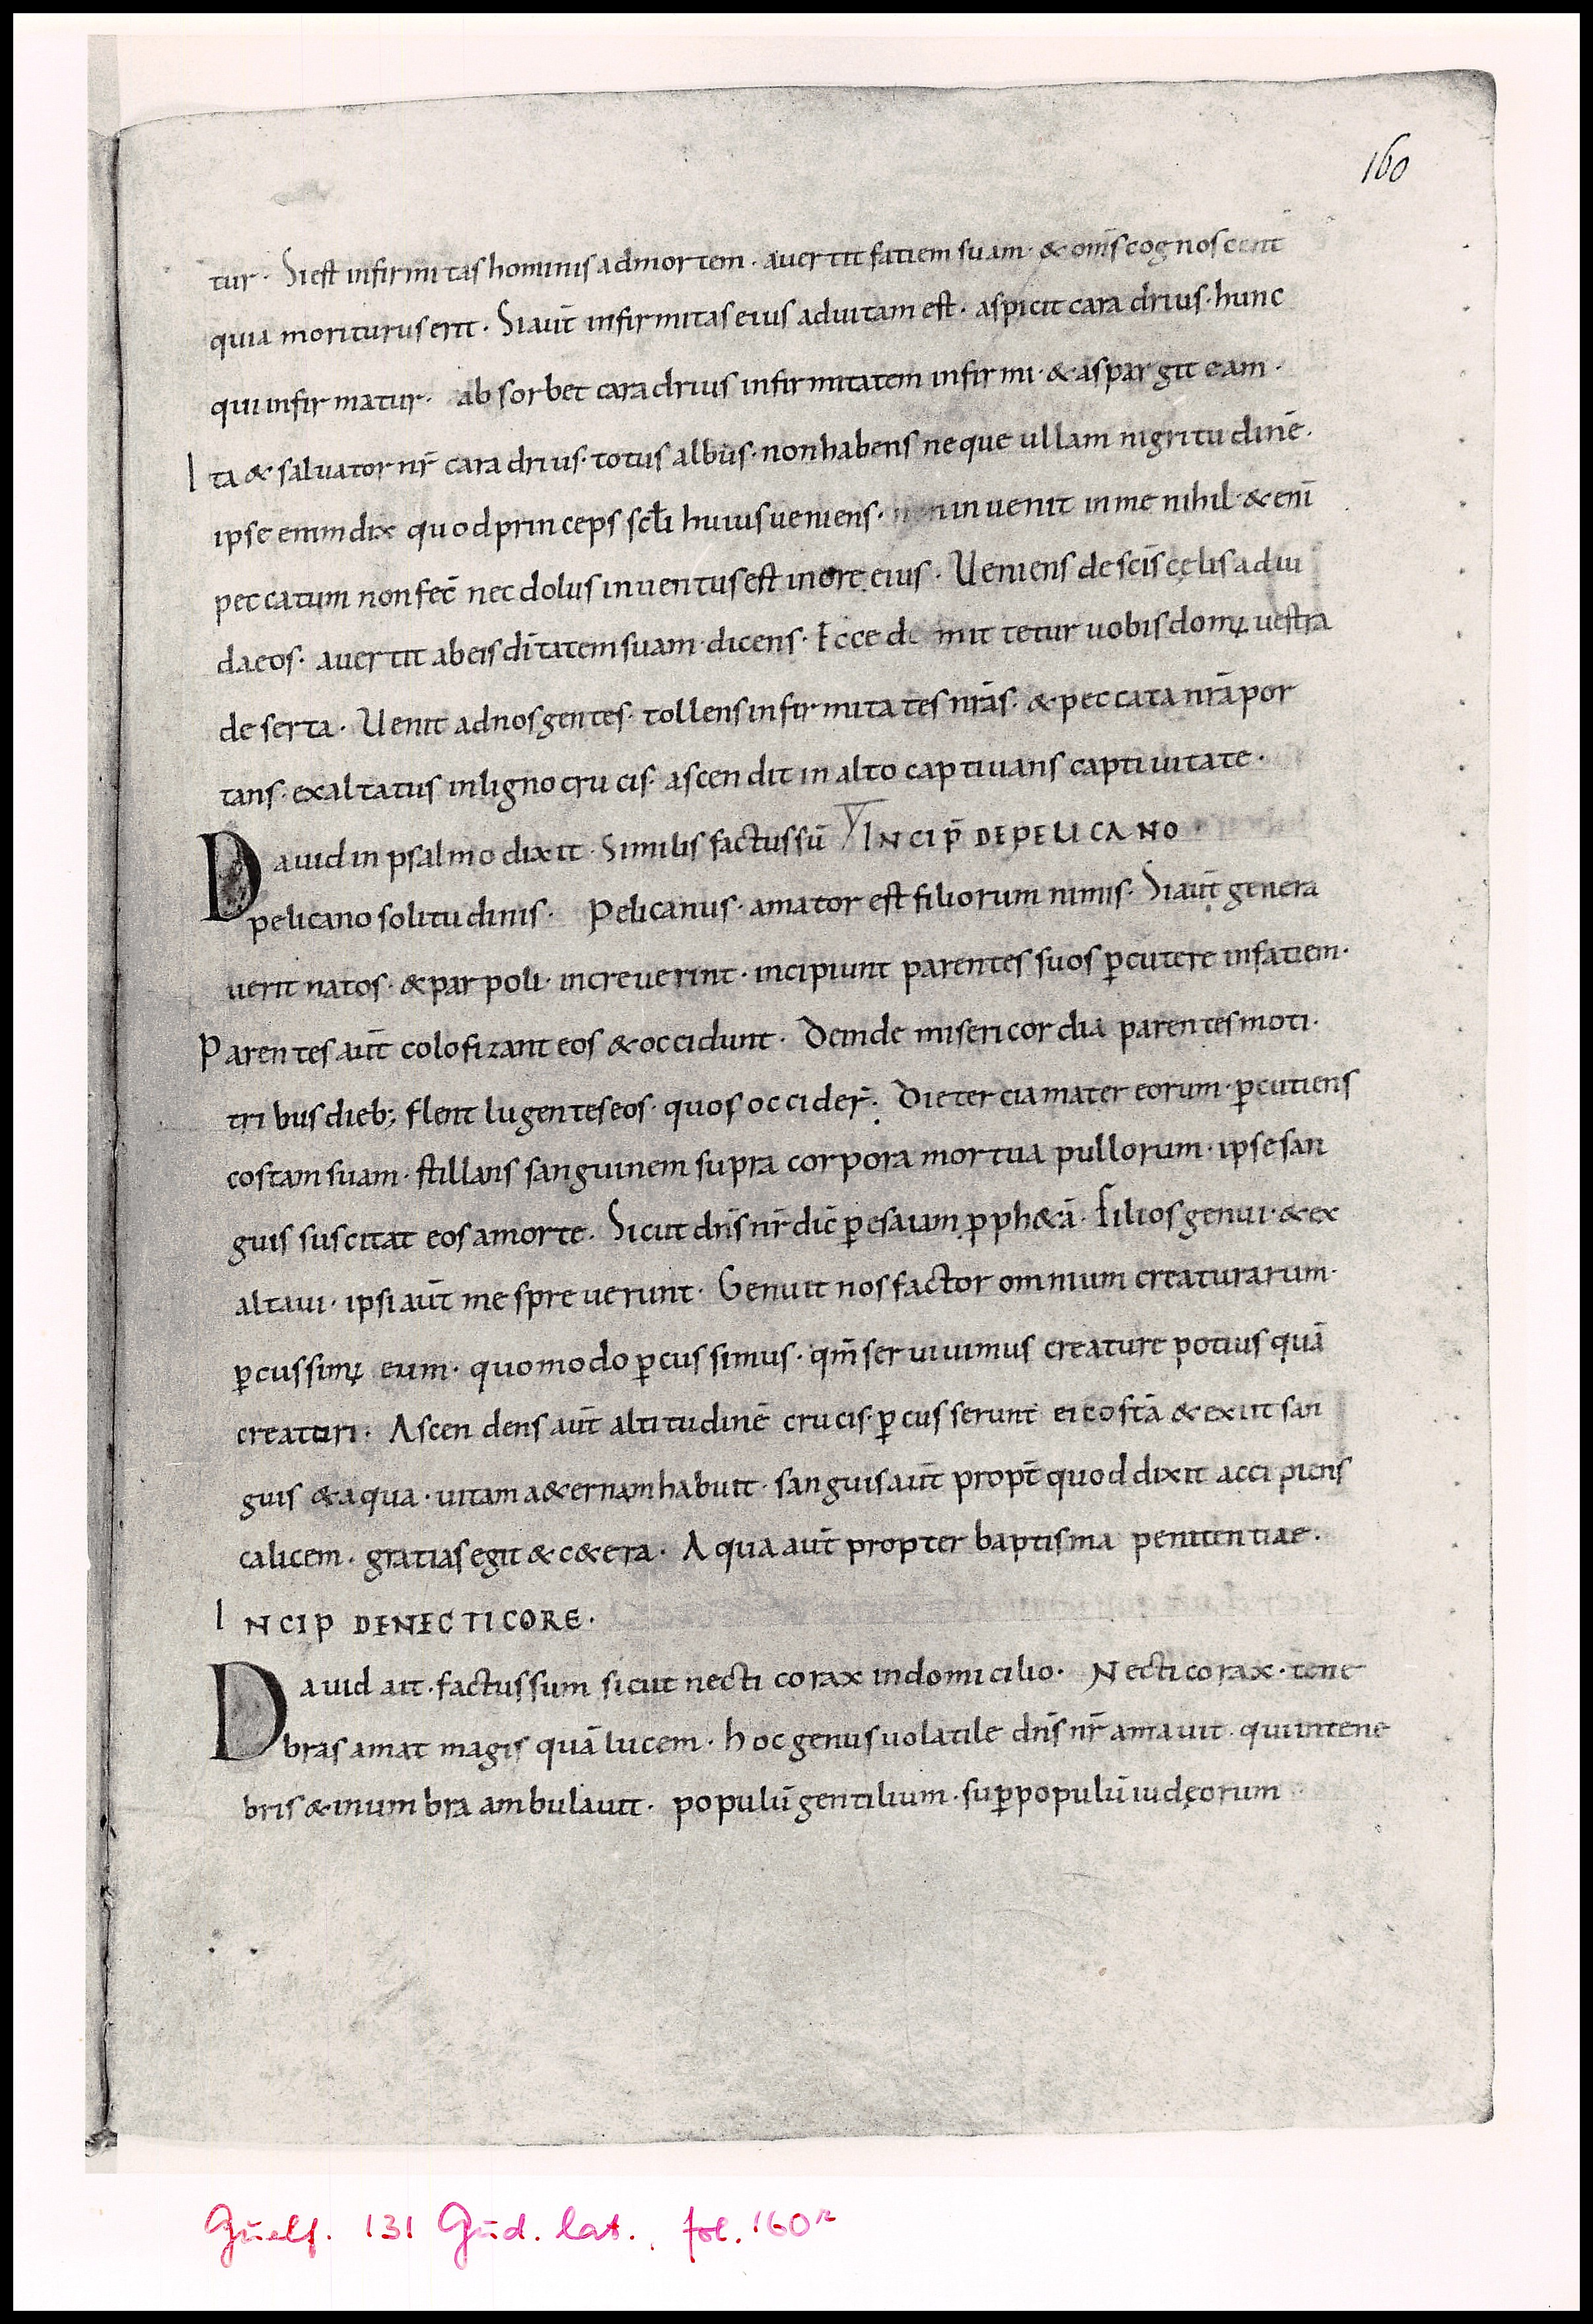 160
tur · Si est infirmitas hominis ad mortem · auertit fatiem suam · & om̄s cognoscent
quia moriturus erit · Si aut̄ infirmitas eius ad uitam est · aspicit caradrius · hunc
qui infirmatur · absorbet caradrius infirmitatem infirmi · & aspargit eam ·
Ita & saluator nr̄ caradrius · totus albus · non habens neque ullam nigritudinē ·
ipse enim dix quod princeps scl̄i huius ueniens · inuenit in me nihil · & eni
peccatum non fec̄ nec dolus inuentus est in ore eius · Ueniens de scīs cęlis ad iu
daeos · auertit ab eis dītatem suam · dicens · Ecce mittetur uobis domꝰ uestra
deserta · Uenit ad nos gentes · tollens infirmitates nrās · & peccata nrā por
tans · exaltatus in ligno crucis · ascendit in alto captiuans captiuitate ·
Dauid in psalmo dixit · Similis factus sū V INCIP̄ DE PELICANO
pelicano solitudinis · Pelicanus · amator est filiorum nimis · Si aut̄ genera
uerit natos · & par poli · increuerint · incipiunt parentes suos ꝑcutere in fatiem ·
Parentes aut̄ colofizant eos & occidunt · Deinde misericordia parentes moti ·
tribus dieb; flent lugentes eos · quos occider̄ · Die tercia mater eorum · ꝑcutiens
costam suam · stillans sanguinem supra corpora mortua pullorum · ipse san
guis suscitat eos a morte · Sicut dn̄s nr̄ dic̄ ꝑ esaiam ꝓph&ā · Filios genui · & ex
altaui · ipsi aut̄ me spreuerunt · Genuit nos factor omnium creaturarum ·
ꝑcussimꝰ eum · quomodo ꝑcussimus · qm̄ seruiuimus creature potius quā
creaturi · Ascendens aut̄ altitudinē crucis · ꝑcusserunt ei costā & exiit san
guis & aqua · uitam a&ernam habuit · sanguis aut̄ propt̄ quod dixit accipiens
calicem · gratias egit & c&era · Aqua aut̄ propter baptisma penitentiae ·
INCIP DE NECTICORE ·
Dauid ait · factus sum sicut necticorax in domicilio · Necticorax · tene
bras amat magis quā lucem · hoc genus uolatile dn̄s nr̄ amauit · qui in tene
bris & in umbra ambulauit · populū gentilium · suꝑ populū iudęorum
Guelf. 131 Gud. lat., fol. 160r